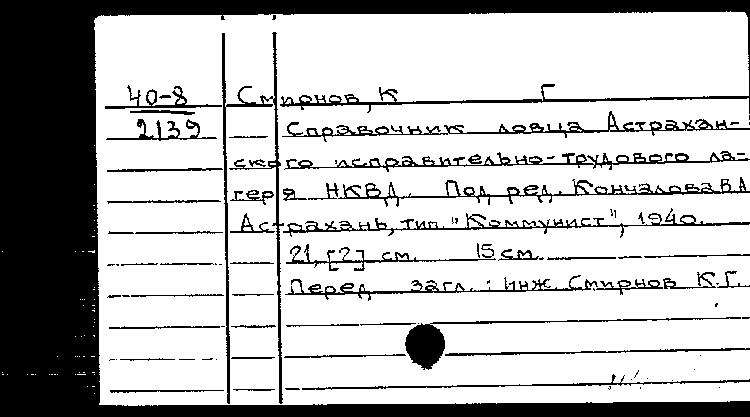 40-8 Смирнов, К Г
2139 Справочник ловца Астрахан-
ского исправительно-трудового ла-
геря НКВД. Под ред. Кончалова В.А.
Астрахань, тип. "Коммунист", 1940.
21, [2] см. 15 см.
Перед загл.: инж. Смирнов К.Г.